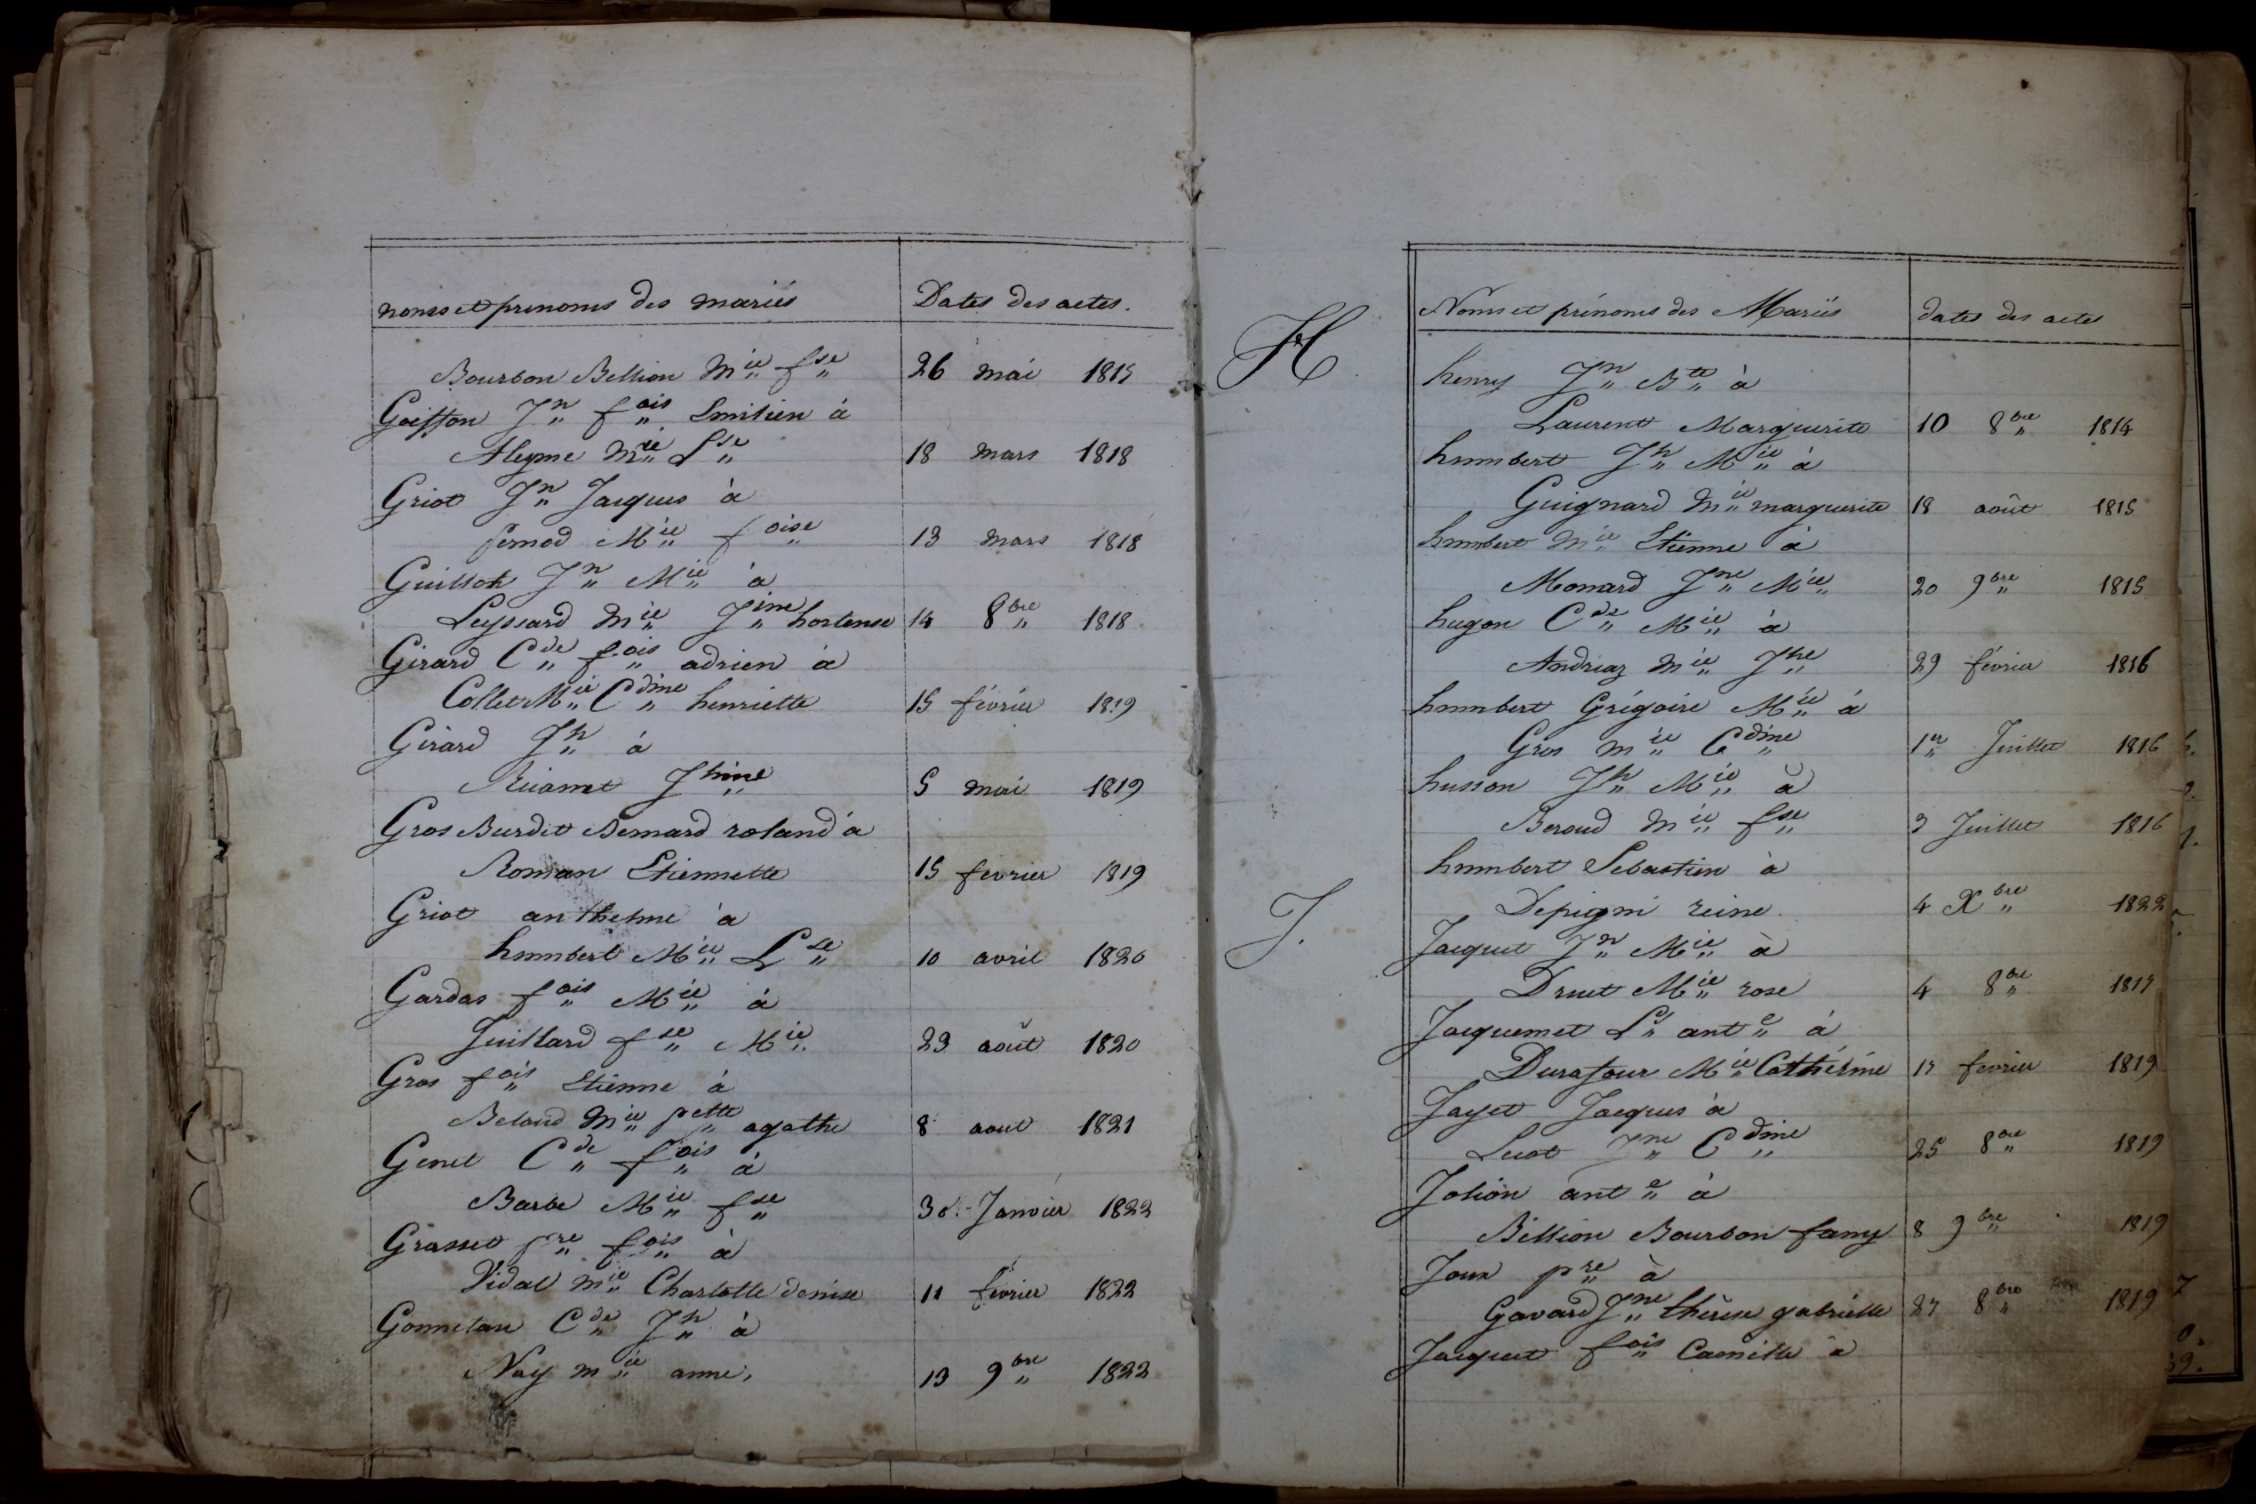 noms et prenoms des mariés Dates des actes.
Bourbon Bellion Mie fse 26 mai 1817
Goiffon Jn fois Emilien à
Aleyme Mie Lse 18 mars 1818
Griot Jn Jacques à
fernod Mie foise 13 mars 1818
Guillot Jn Mie à
Leyssard Mie Jine hortense 14 8bre 1818
Girard Cde fois adrien à
Collet Mie Cdine henriette 15 février 1819
Girard Jh à
Jhine 5 mai 1819
Gros Burdet Bernard roland à
Roman Etiennette 15 février 1819
Griot anthelme à
humbert Mie Lse 10 avril 1820
Gardas fois Mie à
Juillard fse Mie 23 août 1820
Gros fois Etienne à
Beloud Mie pette agathe 8 aout 1821
Genet Cde fois à
Barbe Mie fse 30 Janvier 1822
Grasset pre fois à
Vidal Mie Charlotte denise 11 février 1822
Gonnetan Cde Jh à
Nay mie anne, 13 9bre 1822
Noms et prénoms des Mariés dates des actes
H
henry Jn Bte à
Laurent Marguerite 10 8bre 1814
humbert Jh Mie à
Guignard Mie marguerite 18 août 1815
humbert Mie Etienne à
Monard Jne Mie 20 9bre 1815
hugon Cde Mie à
Andriaz Mie Jhe 29 février 1816
humbert Grégoire Mie à
Gros Mie Cdine 1er Juillet 1816
husson Jh Mie à
Beroud Mie fse 3 Juillet 1816
humbert Sebastien à
Depigni reine 4 Xbre 1822
J.
Jacquet Jn Mie à
Druet Mie rose 4 8bre 1817
Jacquemet Ls ante à
Durafour Mie Cathérine 17 fevrier 1819
Jayet Jacques à
Luot Jne Cdine 25 8bre 1819
Jolion ante à
Billion Bourbon fany 8 9bre 1819
Joux pre à
Gavard Jne thérèse gabrielle 27 8bre 1819
Jacquet fois Camille à